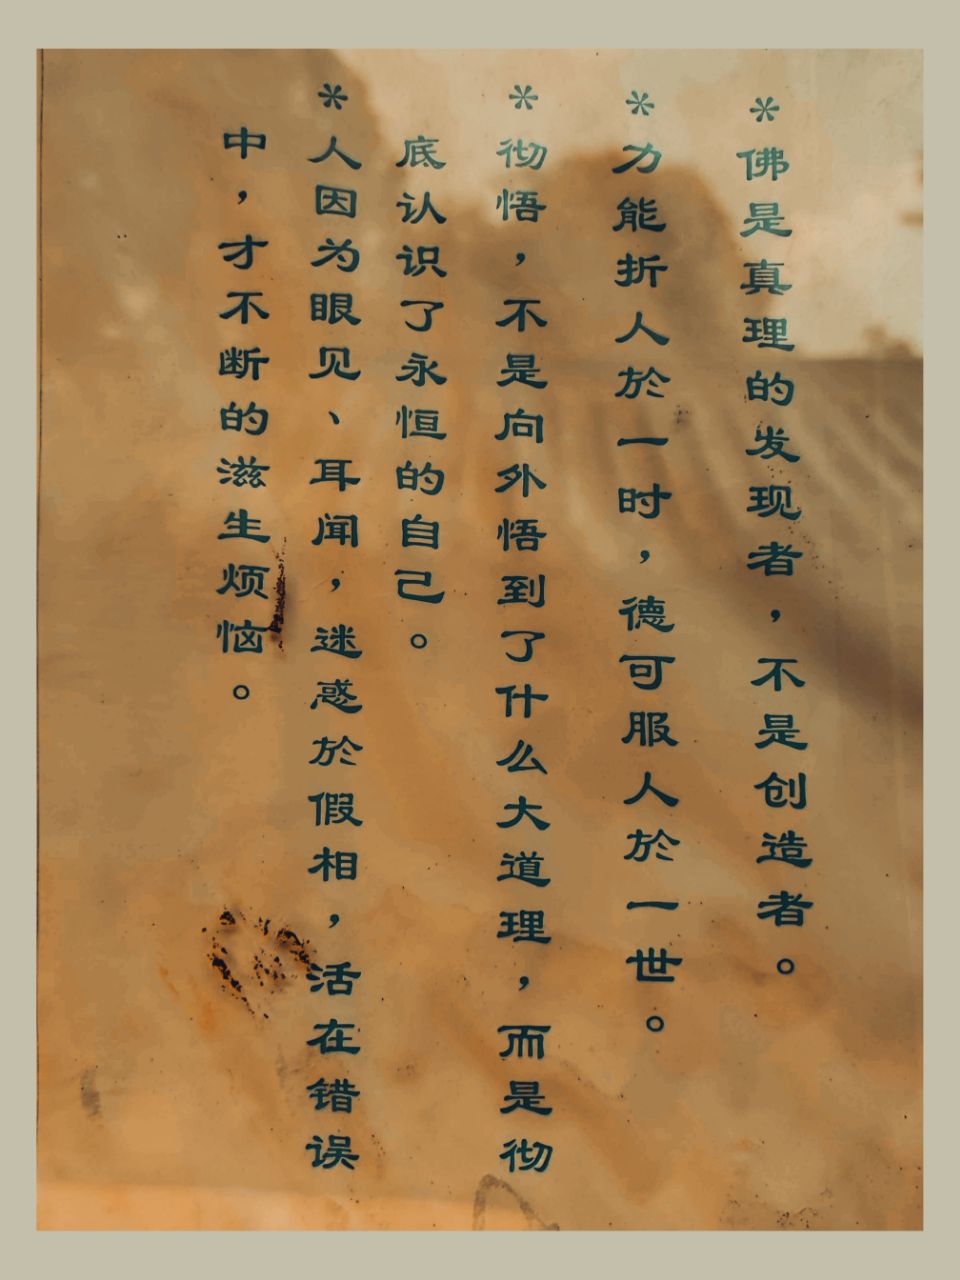 *佛是真理的发现者，不是创造者。
*力能折人於一时，德可服人於一世。
*彻悟，不是向外悟到了什么大道理，而是彻
底认识了永恒的自己。
*人因为眼见、耳闻，迷惑於假相，活在错误
中，才不断的滋生烦恼。